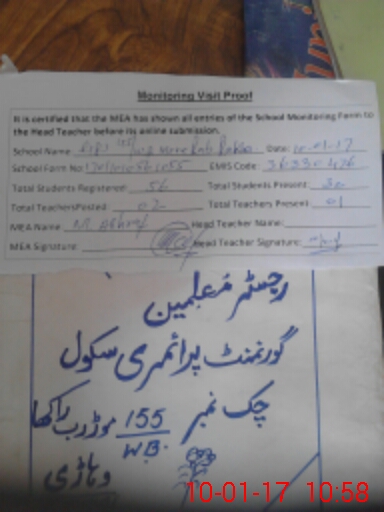 Monitoring Visit Proof
It is certified that the MEA has shown all entries of the School Monitoring Form to
the Head Teacher before its online submission.
School Name: Date: 10-01-17
School Form No: EMIS Code: 36330476
Total Students Registered: 56 Total Students Present: 30
Total Teachers Posted: 02 Total Teachers Present: 01
MEA Name: M. Ashraf Head Teacher Name:
MEA Signature: Head Teacher Signature:
رجسٹر معلمین
گورنمنٹ پرائمری سکول
چک نمبر 155 W.B. موڑ رب راکھا
وہاڑی
10-01-17 10:58